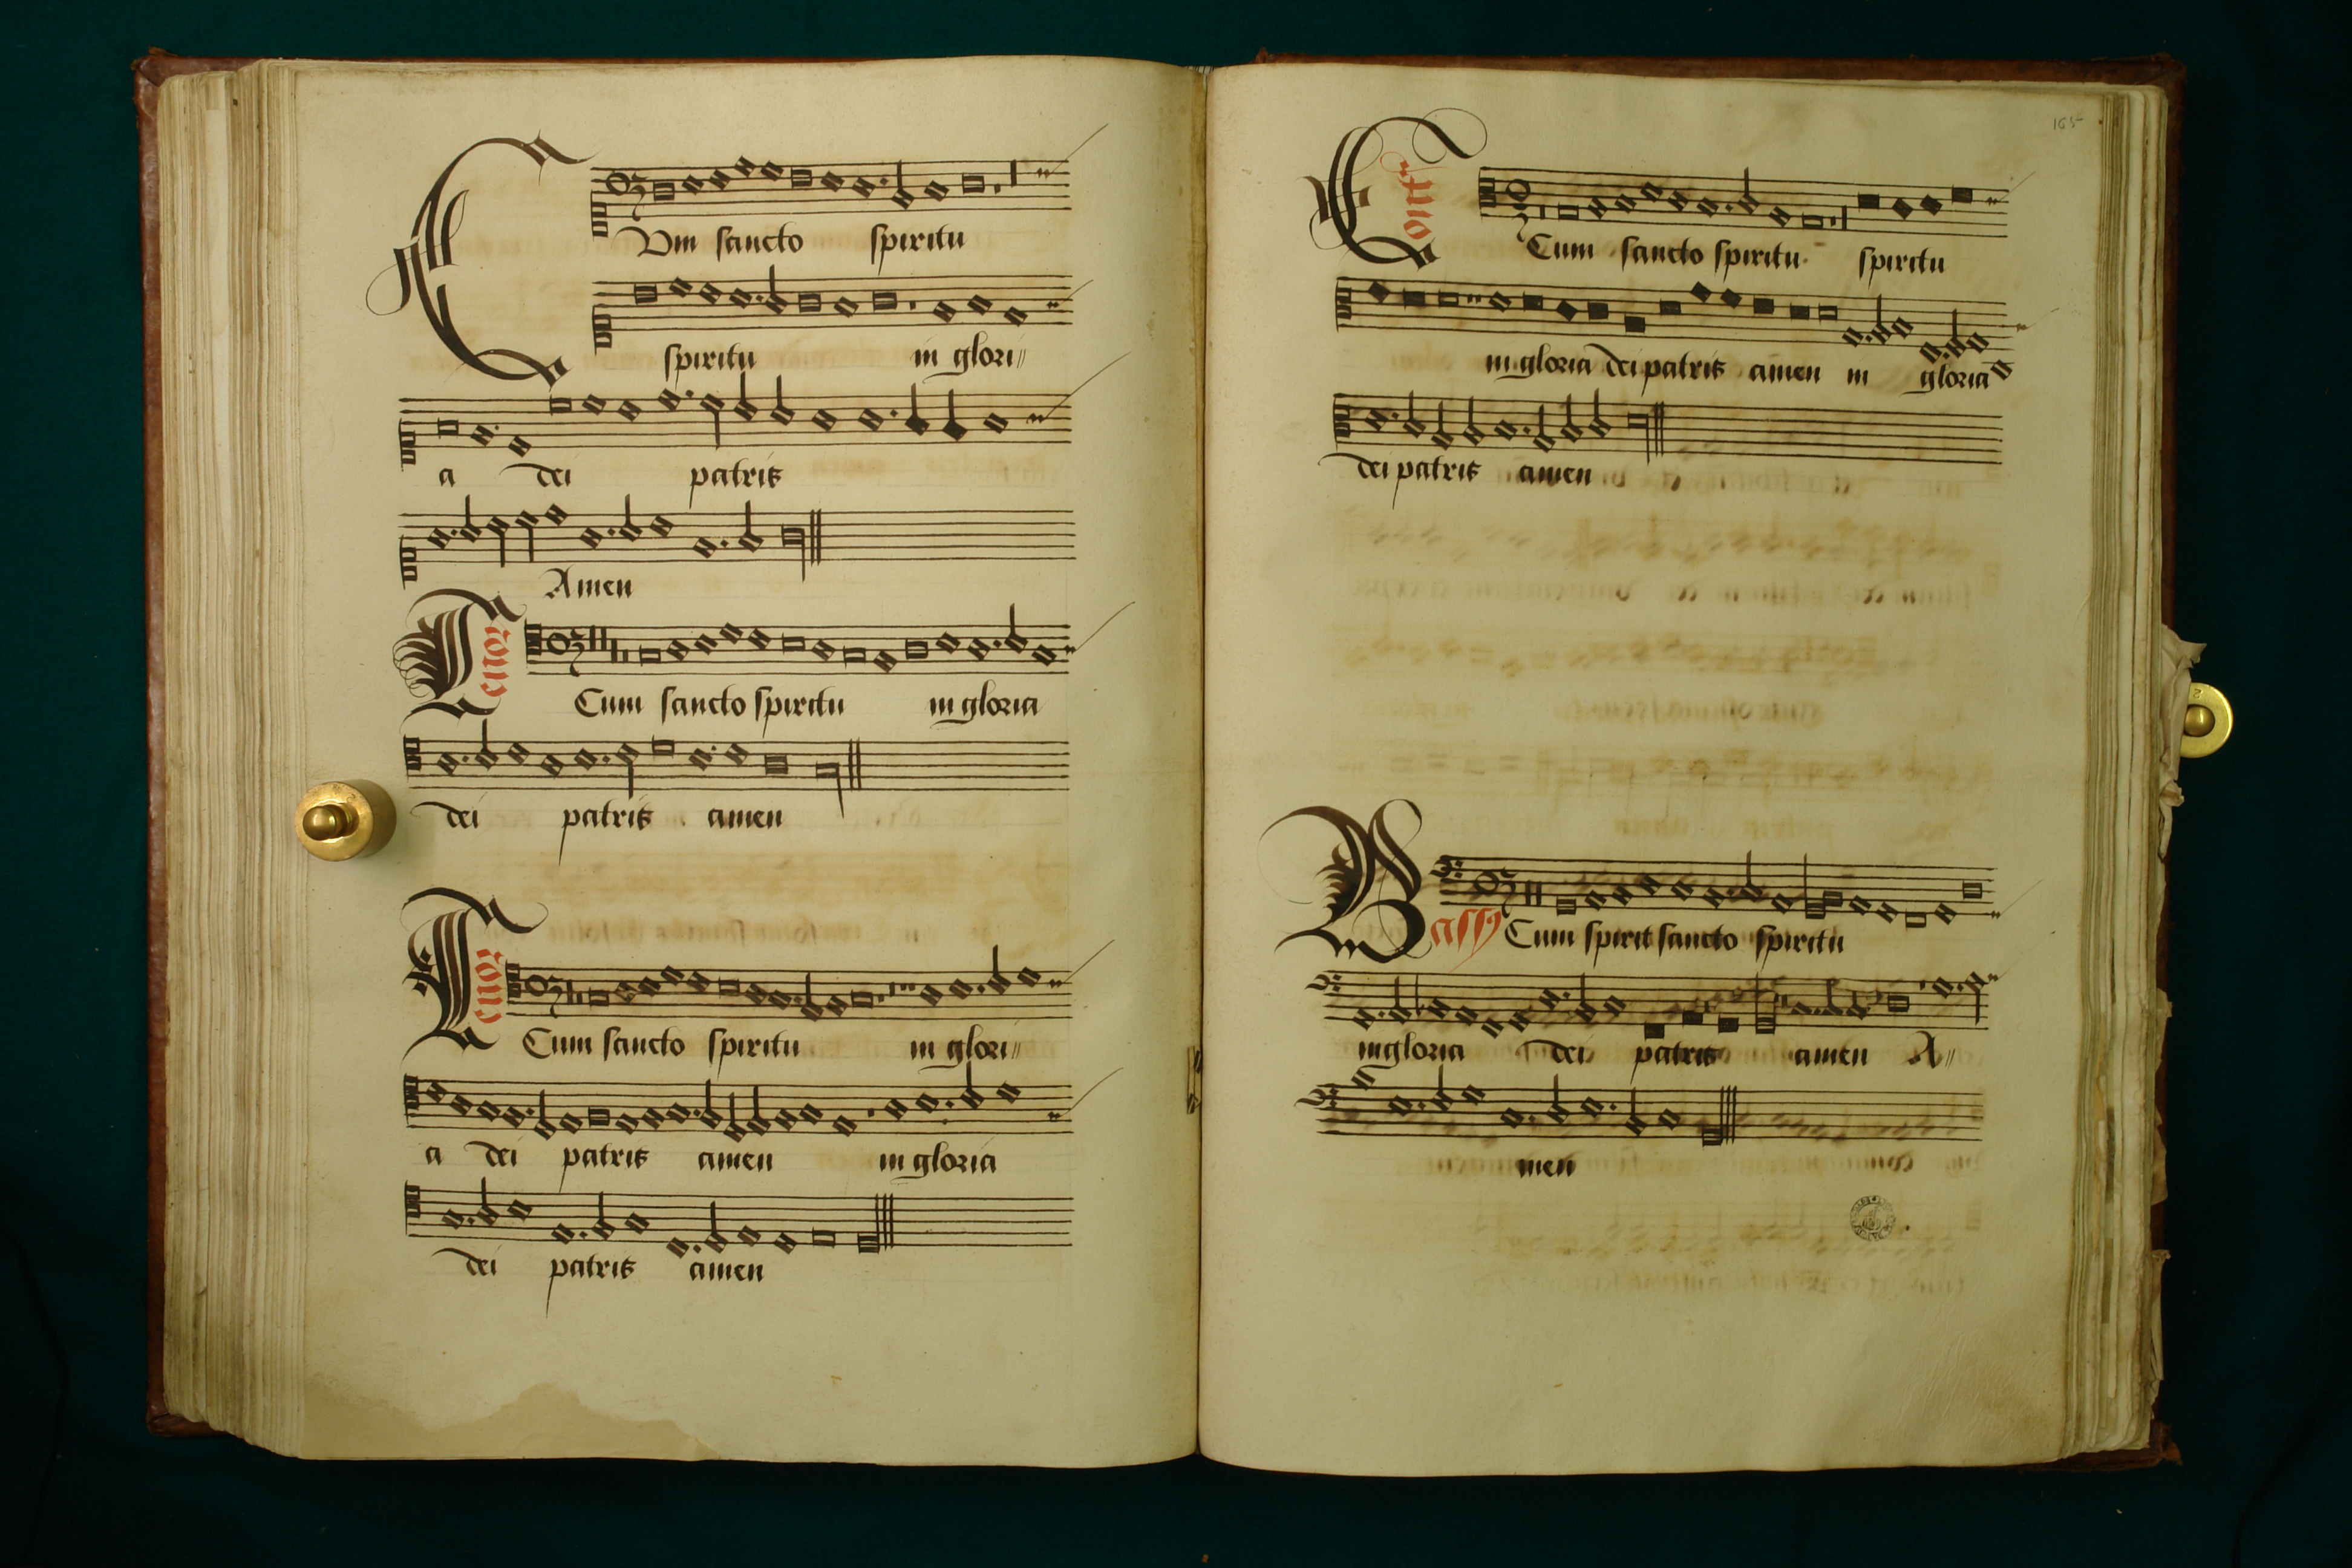 CVm sancto spiritu
spiritu in glori//
a dei patris
Amen
Tenor
Cum sancto spiritu in gloria
dei patris amen
Tenor
Cum sancto spiritu in glori//
a dei patris amen in gloria
dei patris amen
165
Contra
Cum sancto spiritu spiritu
in gloria dei patris amen in gloria
dei patris amen
Bassus
Cum spirit sancto spiritu
in gloria dei patris amen A//
men